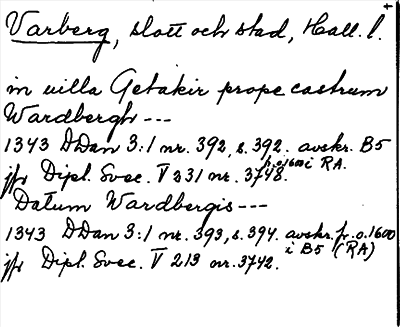 Varberg, slott och stad, Hall. l.
in villa Getakir prope castrum
Wardbergh ---
1343 DDan 3:1 nr. 392, s. 392. avskr. B5
fr. o. 1600 i RA.
jfr Dipl. Svec. V 231 nr. 3748.
Datum Wardbergis ---
1343 DDan 3:1 nr. 393, s. 394. avskr. fr. o. 1600
i B5 (RA)
jfr Dipl. Svec. V 213 nr. 3742.